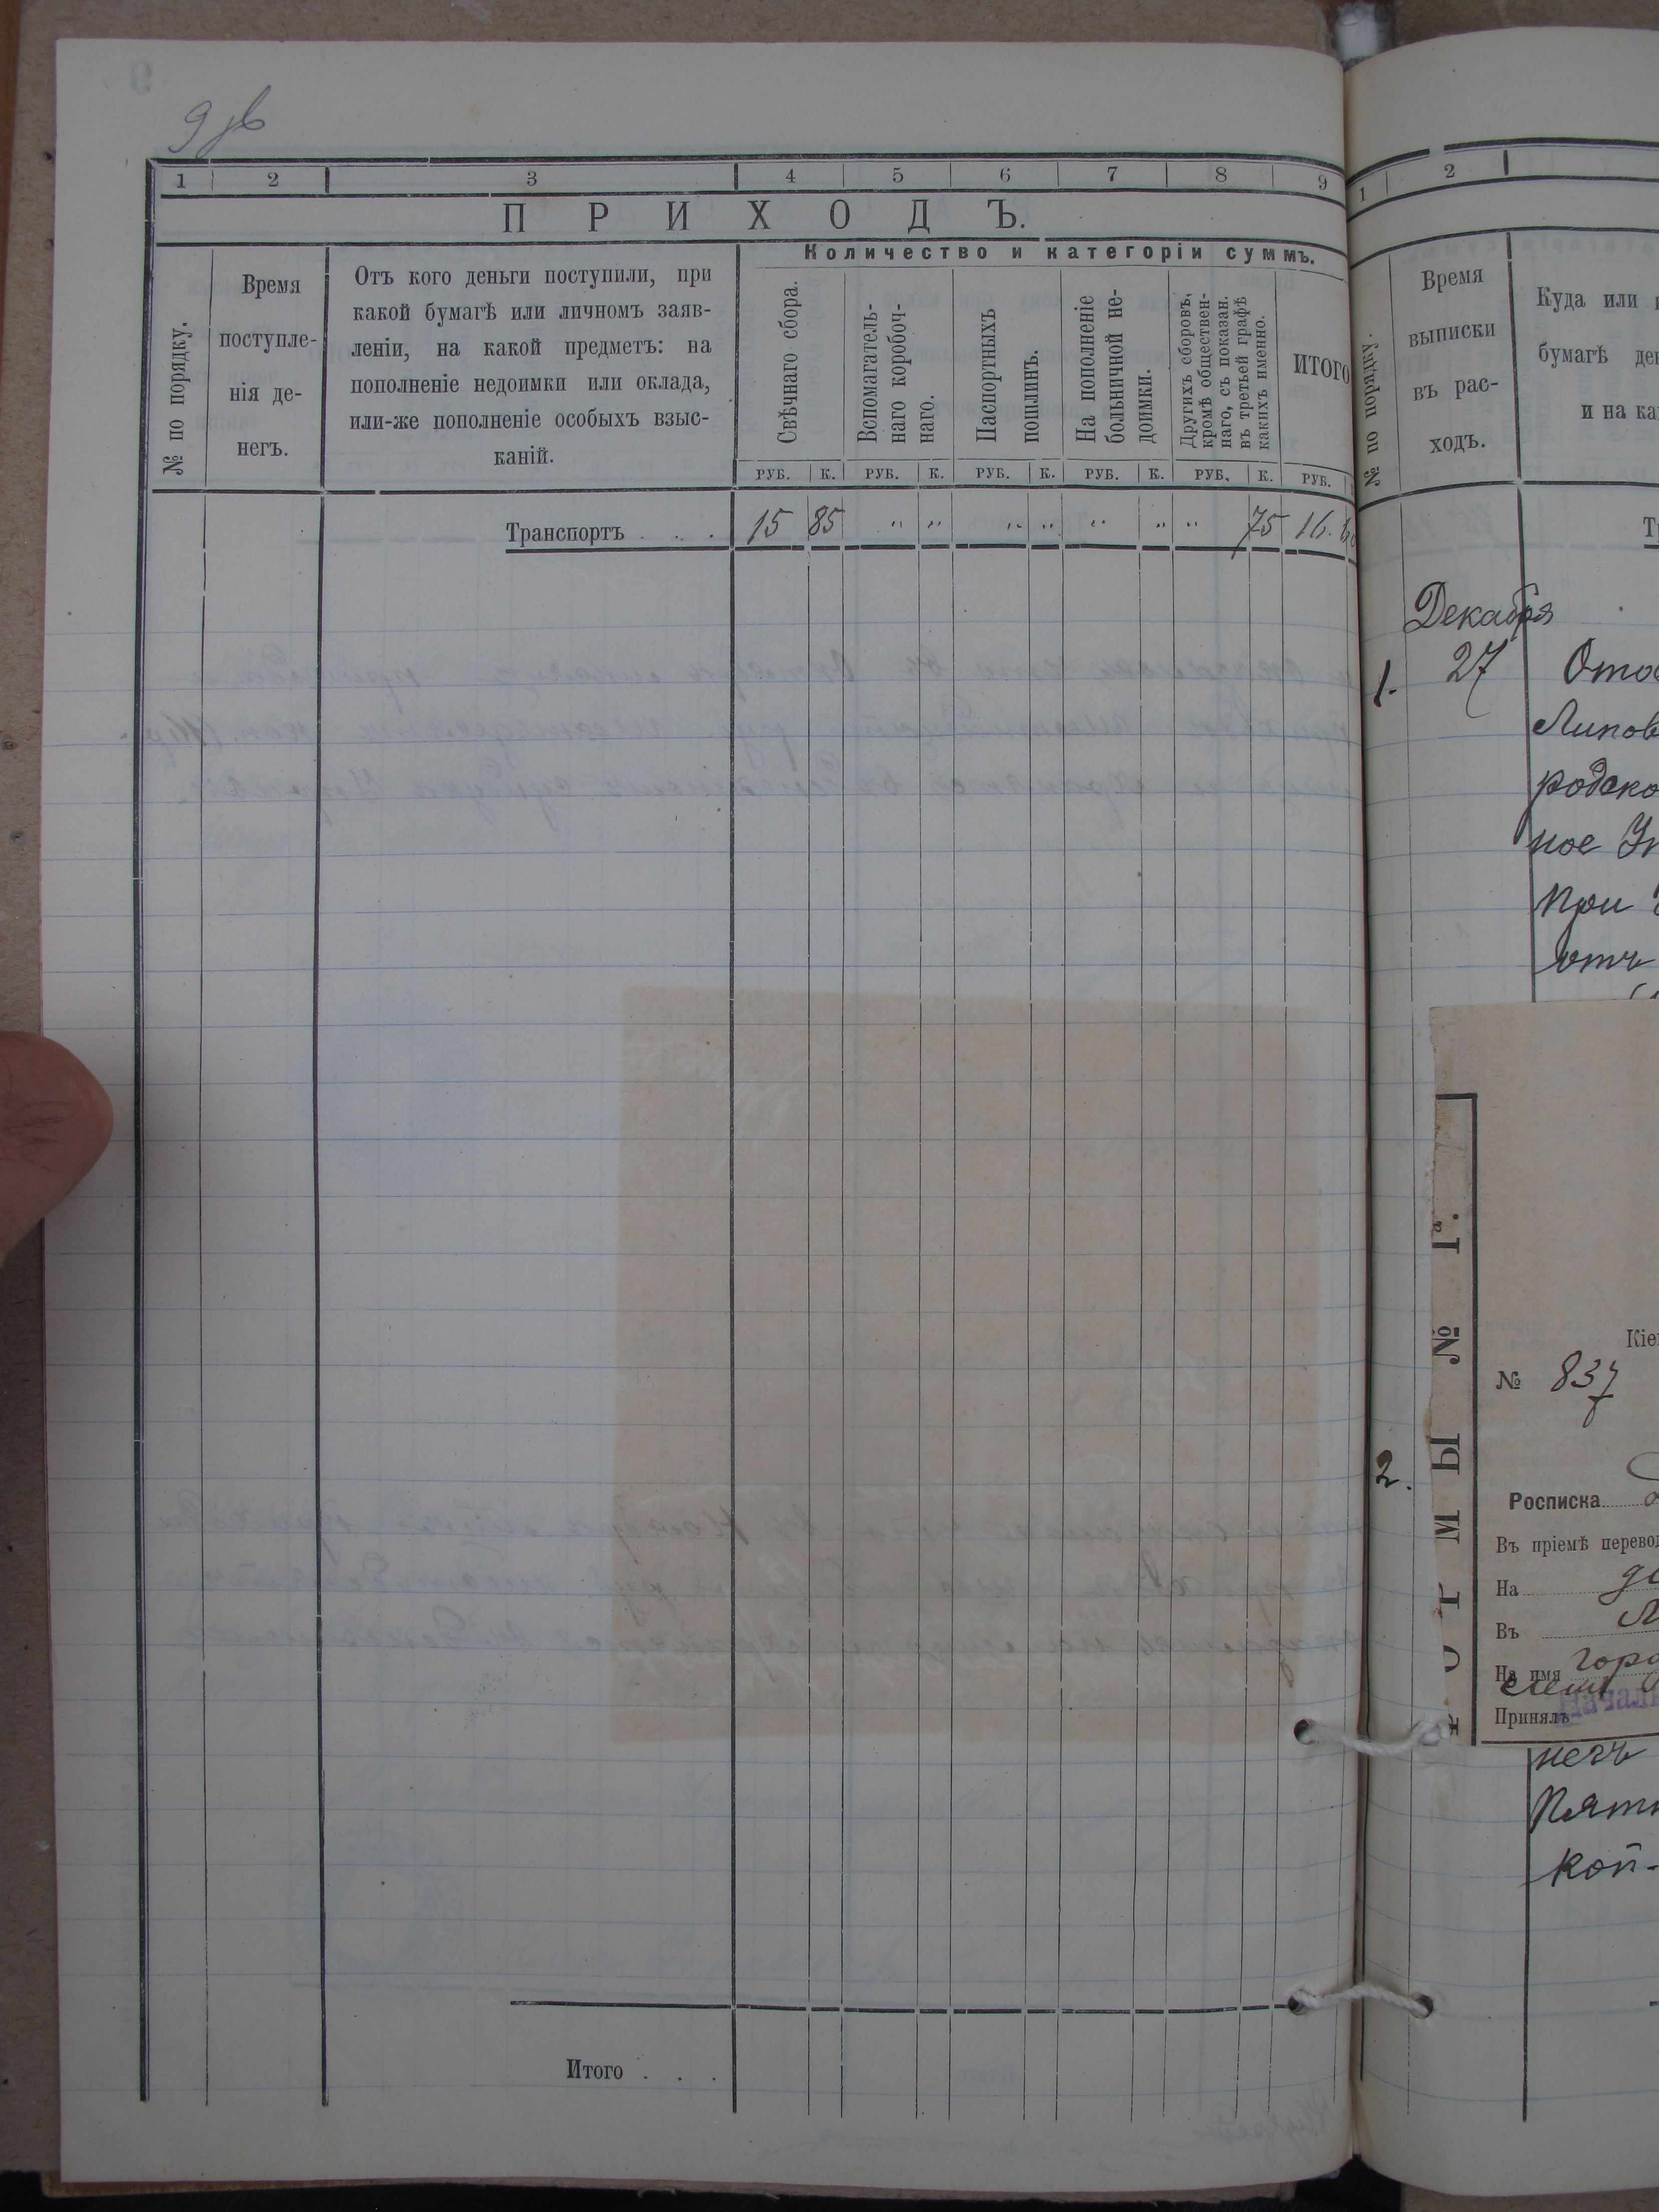 9 дв
1 2 3 4 5 6 7 8 9
ПРИХОДЪ.
Количество и категоріи суммъ.
№ по порядку.
Время
поступле-
нія де-
негъ.
Отъ кого деньги поступили, при
какой бумагѣ или личномъ заяв-
леніи, на какой предметъ: на
пополненіе недоимки или оклада,
или-же пополненіе особыхъ взыс-
каній.
Свѣчнаго сбора.
Вспомагатель-
наго коробоч-
наго.
Паспортныхъ
пошлинъ.
На пополненіе
больничной не-
доимки.
Другихъ сборовъ,
кромѣ обществен-
наго, съ показан.
въ третьей графѣ
какихъ именно.
ИТОГО
РУБ. К. РУБ. К. РУБ. К. РУБ. К. РУБ. К. РУБ.
Транспортъ . . . 15 85 " " " " " " " 75 16.
Итого . . .
1 2
№ по порядку.
Время
выписки
въ рас-
ходъ.
Куда или
бумагѣ
и на
Декабря
1. 27
родско
ное
При
отъ
ФОРМЫ № 1а.
№ 837
2.
Росписка
Въ пріемѣ
На
Въ
На имя
Принялъ
негъ
коп-